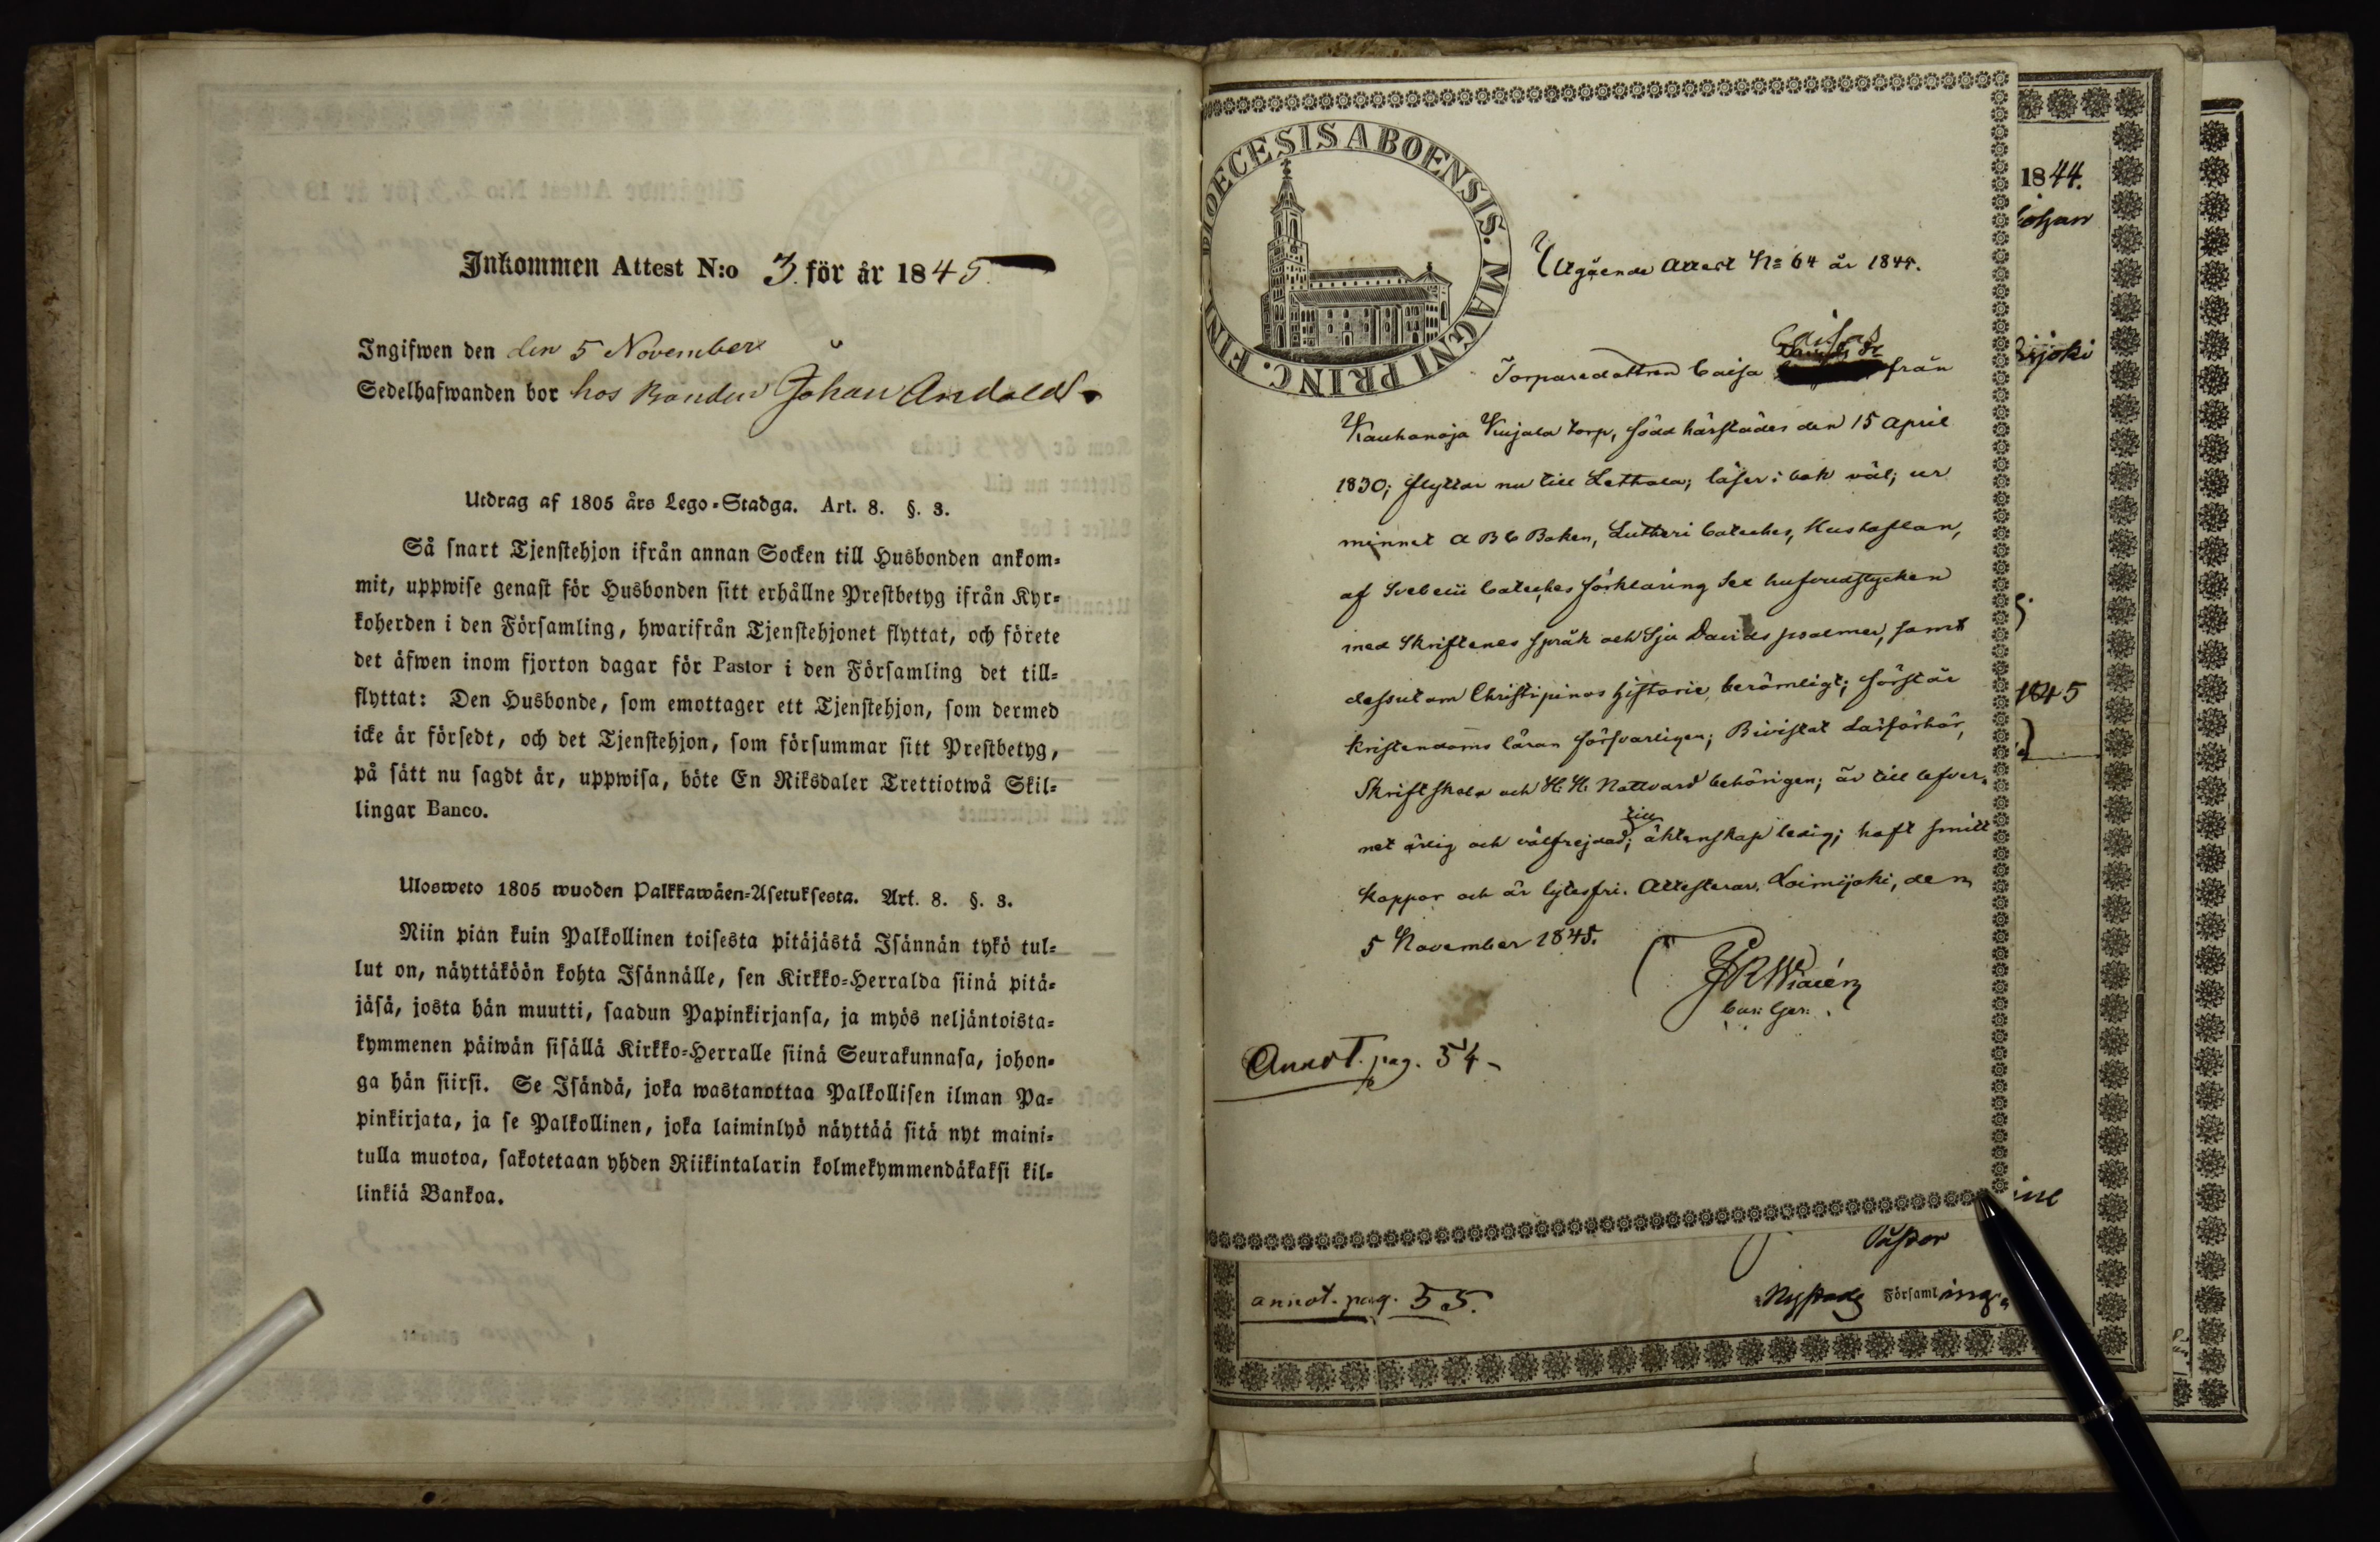 Inkommen Attest N:o 3. för år 1845.
Ingifwen den den 5 November
Sedelhafwanden bor hos Bonden Johan Andola
Utdrag af 1805 års Lego-Stadga. Art. 8. §. 3.
Så snart Tjenstehjon ifrån annan Socken till Husbonden ankom-
mit, uppwise genast för Husbonden sitt erhållne Prestbetyg ifrån Kyr-
koherden i den Församling, hwarifrån Tjenstehjonet flyttat, och förete
det äfwen inom fjorton dagar för Pastor i den Församling det till-
flyttat: Den Husbonde, som emottager ett Tjenstehjon, som dermed
icke är försedt, och det Tjenstehjon, som försummar sitt Prestbetyg,
på sätt nu sagdt är, uppwisa, böte En Riksdaler Trettiotwå Skil-
lingar Banco.
Ulosweto 1805 wuoden Palkkawäen-Asetuksesta. Art. 8. §. 3.
Niin pian kuin Palkollinen toisesta pitäjästä Isännän tykö tul-
lut on, näyttäköön kohta Isännälle, sen Kirkko-Herralda siinä pitä-
jäsä, josta hän muutti, saadun Papinkirjansa, ja myös neljäntoista-
kymmenen päiwän sisällä Kirkko-Herralle siinä Seurakunnasa, johon-
ga hän siirsi. Se Isändä, joka wastanottaa Palkollisen ilman Pa-
pinkirjata, ja se Palkollinen, joka laiminlyö näyttää sitä nyt maini-
tulla muotoa, sakotetaan yhden Riikintalarin kolmekymmendäkaksi kil-
linkiä Bankoa.
DIOECESIS ABOENSIS. MAGNI PRINC. FINL.
Utgående Attest No 64 år 1845.
Torparedottren Caisa från
Kauhanoja Kujala torp, född härstädes den 15 April
1830; flyttar nu till Letthala; läser i bok väl; ur
minnet A B C Boken, Lutheri Cateches, Hustaflan,
af Svebelii Cateches förklaring Sex hufvudstycken
med Skriftenes språk och Sju Davids psalmer, samt
dessutom Christi pinos historie berömligt; förstår
kristendoms läran försvarligen; Bivistat Läsförhör,
Skriftskola och H. H. Nattvard behörigen; är till lefver-
net ärlig och välfrejdad; till äktenskap ledig; haft smitt
koppor och är lytesfri. Attesterar. Loimijoki, den
5 November 1845.
Annot. pag. 54
1844.
Johan
1845
Pastor
annot. pag. 55.
Nystads Församling.